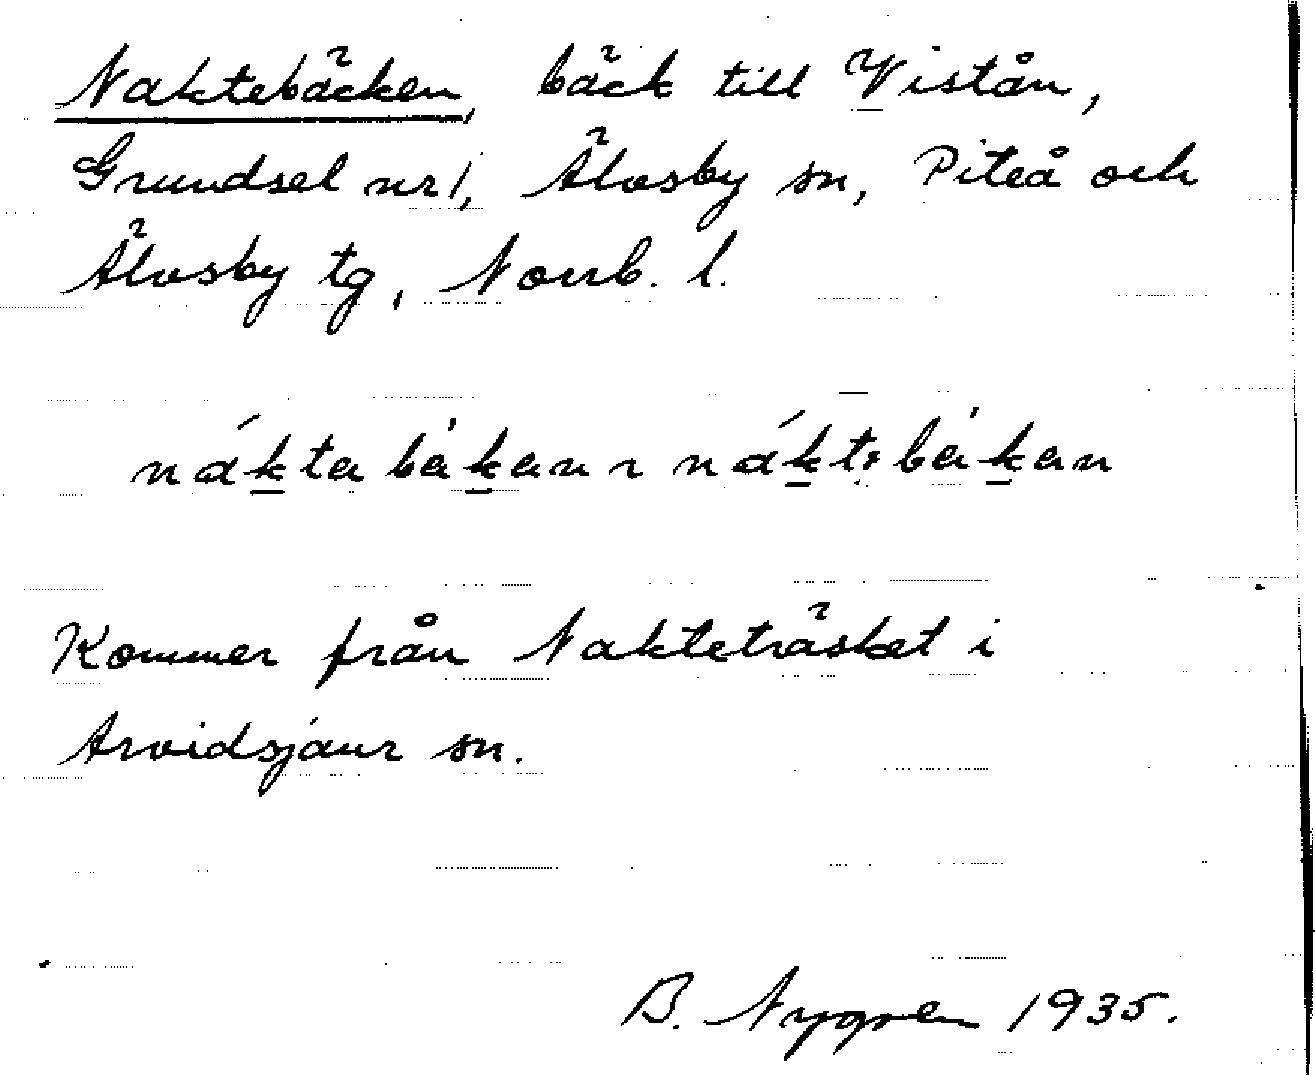 Naktebäcken, bäck till Vistån,
Grundsel nr 1, Älvsby sn, Piteå och
Älvsby tg, Norrb. l.
nákta bákan ~ nákte bákan
Kommer från Nakteträsket i
Arvidsjaur sn.
B. Nygren 1935.